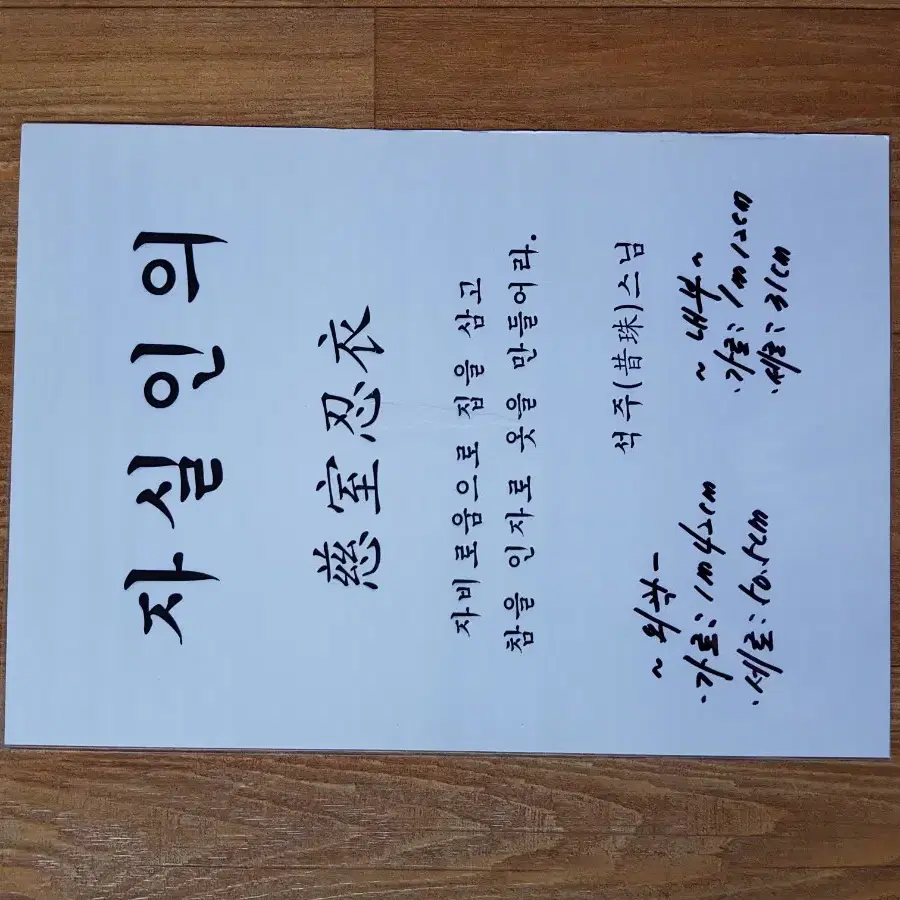 자실인의
慈室忍衣
자비로움으로 집을 삼고
참을 인자로 옷을 만들어라.
석주(昔珠)스님
~ 외곽 ~
·가로: 1m 42cm
·세로: 50.5cm
~ 내부 ~
·가로: 1m 12cm
·세로: 31cm